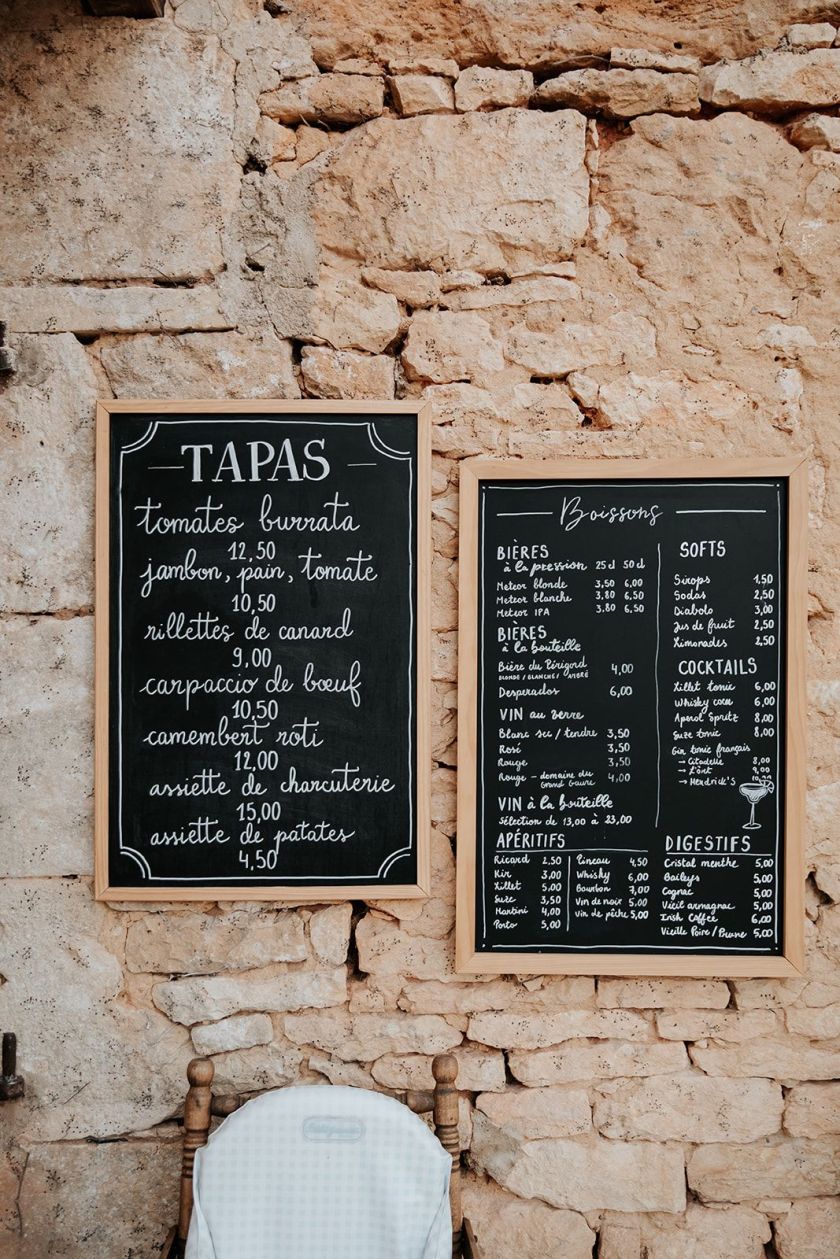 TAPAS
tomates burrata
12,50
jambon, pain, tomate
10,50
rillettes de canard
9,00
carpaccio de bœuf
10,50
camembert roti
12,00
assiette de charcuterie
15,00
assiette de patates
4,50
Boissons
BIÈRES
à la pression 25cl 50cl
Meteor blonde 3,50 6,00
Meteor blanche 3,80 6,50
Meteor IPA 3.80 6,50
BIÈRES
à la bouteille
Bière du Périgord 4,00
BLONDE / BLANCHE / AMBRÉ
Desperados 6,00
VIN au verre
Blanc sec / tendre 3,50
Rosé 3,50
Rouge 3,50
Rouge - domaine du 4,00
VIN à la bouteille
Sélection de 13,00 à 23,00
SOFTS
Sirops 1,50
Sodas 2,50
Diabolo 3,00
Jus de fruit 2,50
Limonades 2,50
COCKTAILS
Lillet tonic 6,00
Whisky coca 6,00
Aperol Spritz 8,00
Suze tonic 8,00
Gin tonic français
→ Citadelle 8,00
→ 9,00
→ Hendrick's
APÉRITIFS
Ricard 2,50
Kir 3,00
Lillet 5,00
Suze 3,50
Martini 4,00
Porto 5,00
Pineau 4,50
Whisky 6,00
Bourbon 7,00
Vin de noix 5,00
Vin de pêche 5,00
DIGESTIFS
Cristal menthe 5,00
Baileys 5,00
Cognac 5,00
Vieil armagnac 5,00
Irish Coffee 6,00
Vieille Poire / Prune 5,00